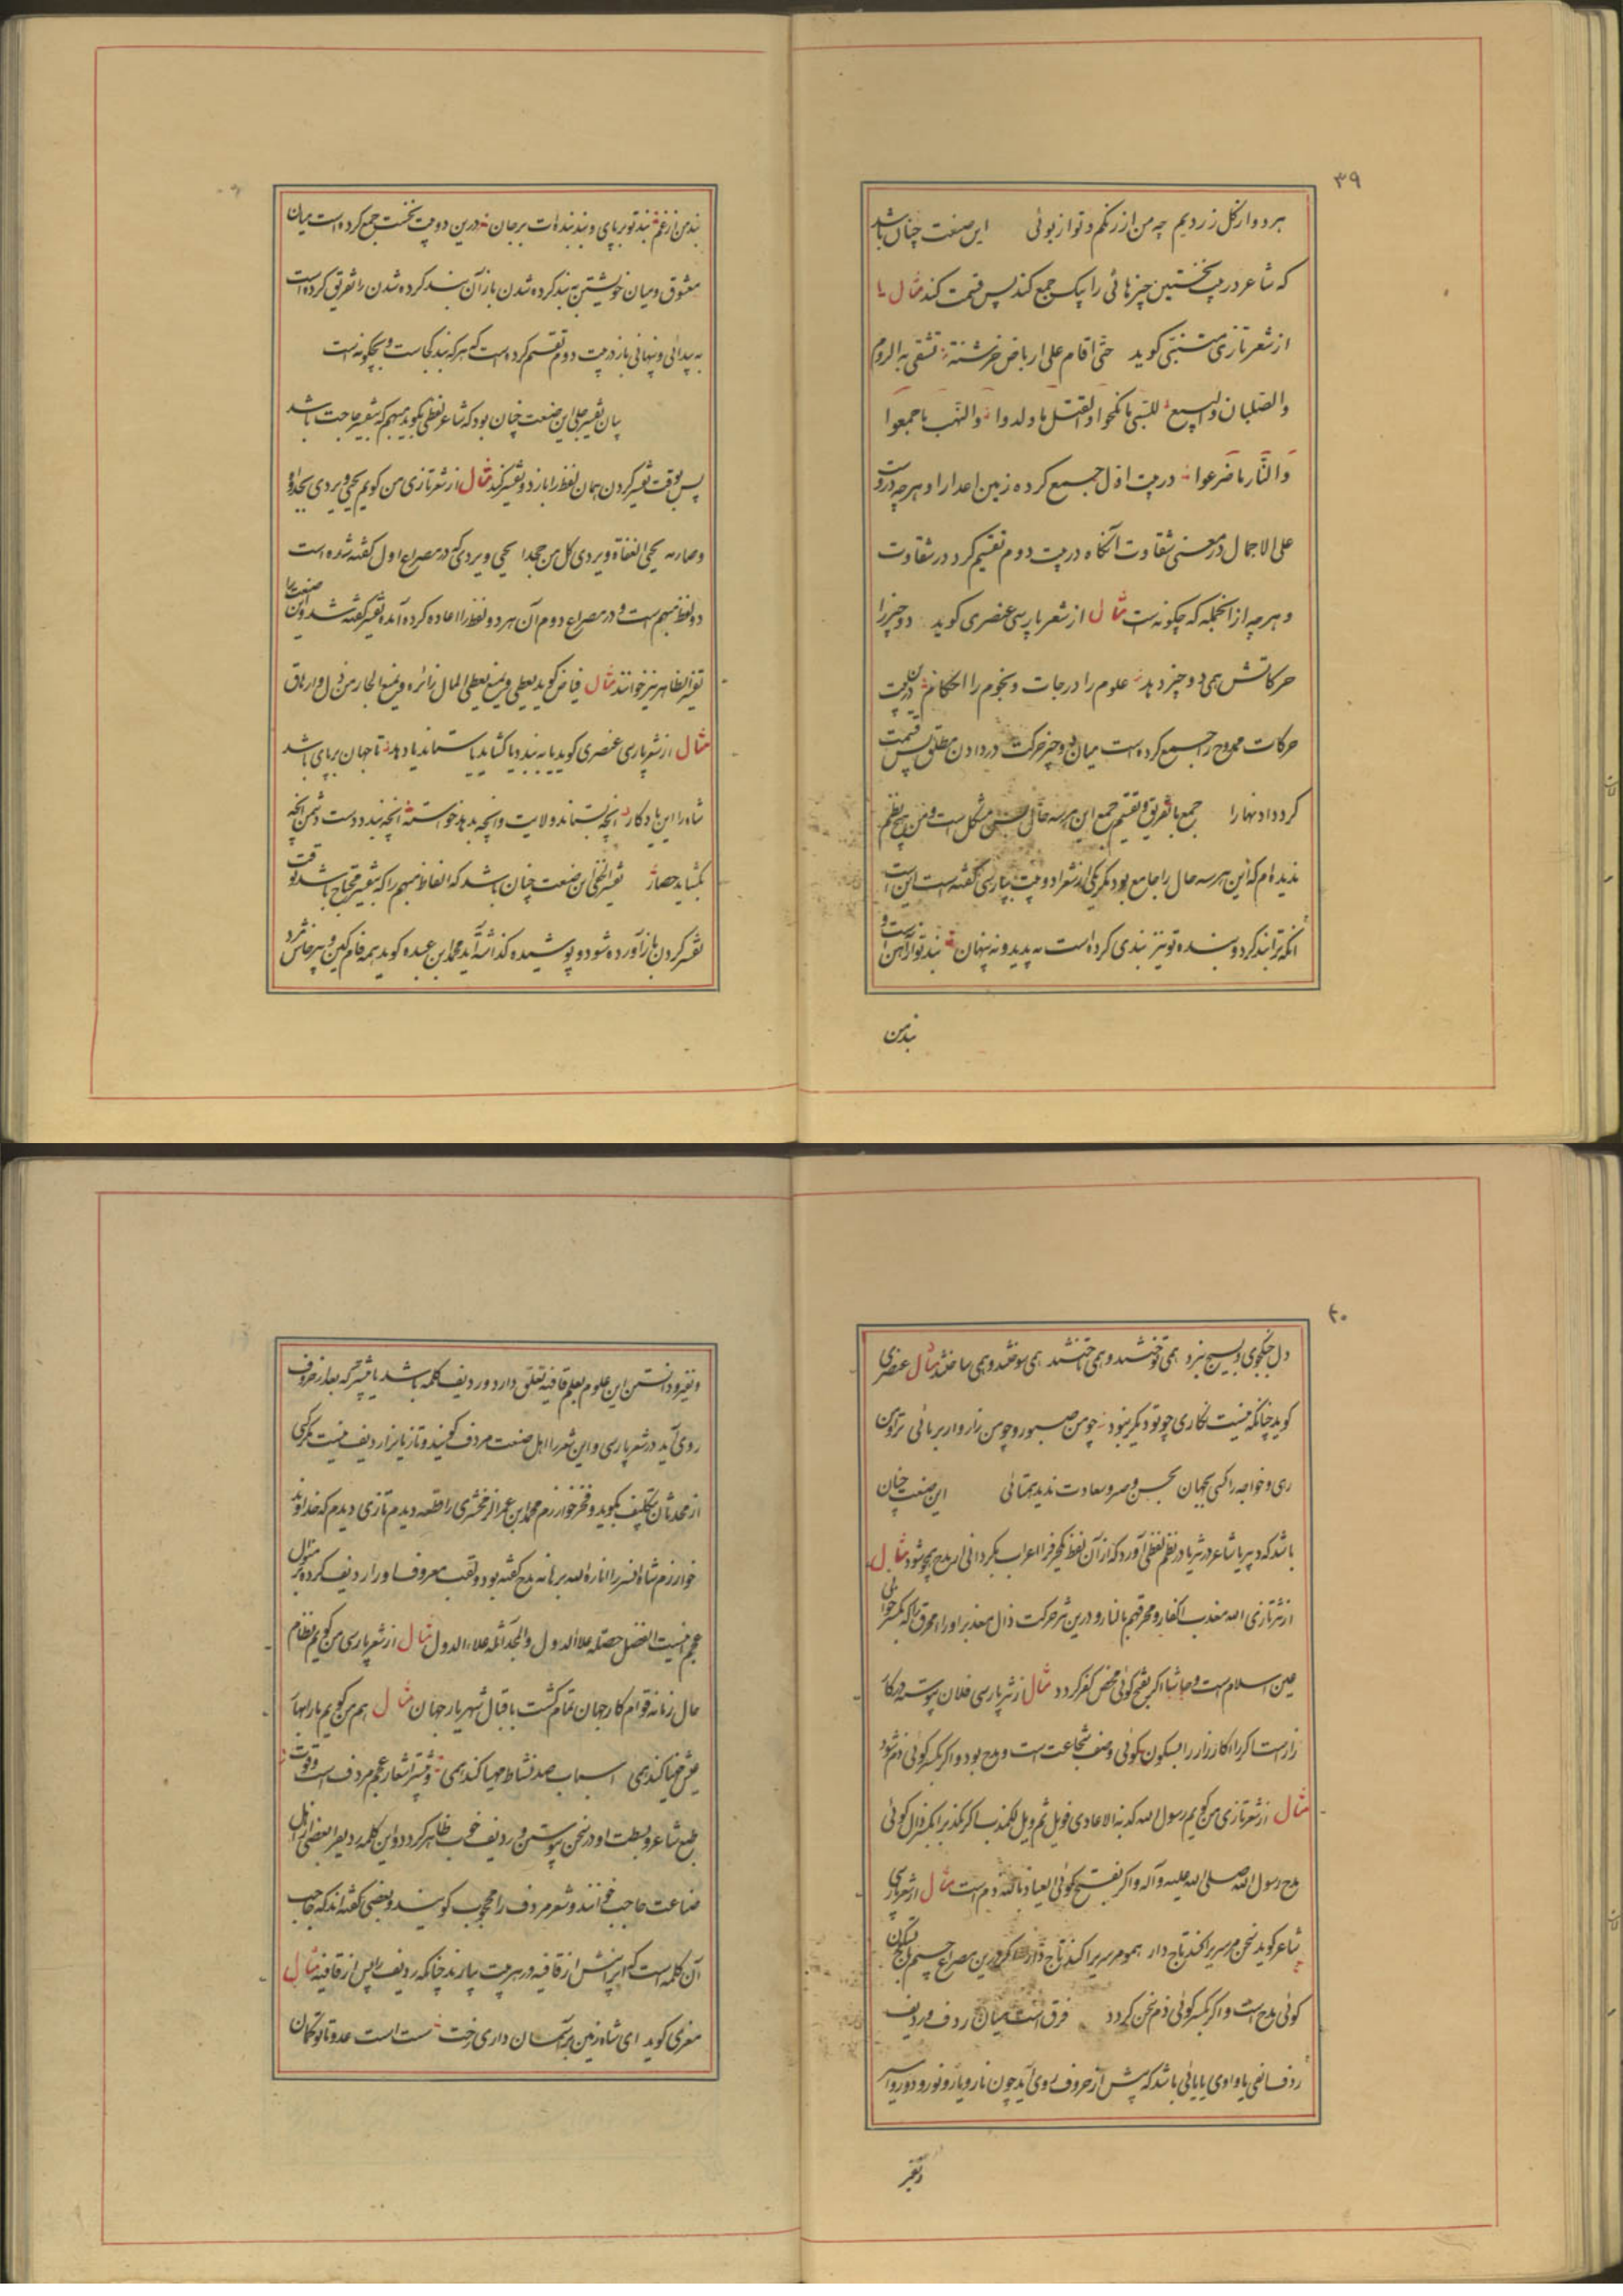 ۳۹
هر دو از گل زردیم چه من از رنگم و تو از بوئی این صنعت چنان باشد
که شاعر در بیت نخستین چیزهائی را یک جمع کند پس قسمت کند مثال یا
از شعر تازی متنبی گوید حتی اقام علی ارباض خرشنة تشقی به الروم
والصلبان والبیع للسّبی ما نکحوا والقتل ما ولدوا والنّهب ما جمعوا
والنّار ما ضرعوا در بیت اوّل جمع کرده زمین اعدا را و هرچه دروست
علی الاجمال در معنی شقاوت آنگاه در بیت دوم تقسیم کرد در شقاوت
و هرچه از آنجمله که چگونه است مثال از شعر پارسی عنصری گوید دو چیز را
حرکاتش همی دو چیز دهد علوم را درجات و نجوم را احکام درین بیت
حرکات ممدوح را جمع کرده است میان دو چیز حرکت در دادن مطلق پس قسمت
کرد داد نهارا جمع با تفریق و تقسیم جمع این هر سه حال مشکل است و من هیچ نظم
ندیده‌ام که این هر سه حال را جامع بود مگر یکی از شعرا دو بیت بپارسی گفته است این است
آنکه ترا بند کرد و بنده تو نیز بندی کرده است نه پدید و نه پنهان بند تو از آهن است و
بند من
بند من از غم بند تو بر پای و بند بنده‌ات بر جان درین دو بیت نخست جمع کرده است میان
معشوق و میان خویشتن به بند کرده شدن باز آن بند کرده شدن را تفریق کرده است
به پیدائی و پنهانی باز در بیت دوم تقسیم کرده است که هر که بند کجاست و چگونه است
بیان تفسیر جلی این صنعت چنان بود که شاعر لفظی بگوید مبهم که بتفسیر حاجت باشد
پس بوقت تفسیر کردن همان لفظ را باز برد و تفسیر کند مثال از شعر تازی من گویم یحیی و یردی بجدواه
وصارمه یحیی العفاة و یردی کل من حجدا یحیی و یردی که در مصراع اول گفته شده است
دو لفظ مبهم است و در مصراع دوم آن هر دو لفظ را اعاده کرده آمده تفسیر گفته شد و این صنعت را
تفسیر الظاهر نیز خوانند مثال فیاض گوید یعطی و یمنع یعطی المال زائره و یمنع الجار من ذل و ارهاق
مثال از شعر پارسی عنصری گوید یا به بندد یا گشاید یا ستاند یا دهد تا جهان بر پای باشد
شاه را این یادگار آنچه بستاند ولایت و آنچه بدهد خواسته آنچه بندد دست دشمن آنچه
بگشاید حصار تفسیر الخفی این صنعت چنان باشد که الفاظ مبهم را که بتفسیر محتاج باشد وقت
تفسیر کردن باز آورده شود و پوشیده گذاشته آید محمد ابن عبده گوید همه فام کین و پرخاش مرد
۴۰
دل جنگجوی و بسیج نبرد همی توختند و همی تاختند همی سوختند و همی ساختند مثال عنصری
گوید چنانکه نیست نگاری چو تو دیگر نبود چو من صبور و چو من زاروار بربائی ترا من
ری و خواجه را کسی بجهان بحسن و صبر و سعادت ندید همتائی این صنعت چنان
باشد که دبیر یا شاعر در نثر یا در نظم لفظی آورد که از آن لفظ یکحرف را اعراب بگردانی از مدح بهجو شود مثال
از نثر تازی الله معذب الکفار و محرقهم بالنار و درین نثر حرکت ذال معذب را و راء محرق را که بکسر خوانی
عین اسلام است و حاشا اگر بفتح گوئی محض کفر گردد مثال از نثر پارسی فلان پیوسته در کار
زار است اگر راء کارزار را بسکون گوئی وصف شجاعت است و مدح بود و اگر بکسر گوئی ذم شود
مثال از شعر تازی من گویم رسول الله کذبه الاعادی فویل ثم ویل لمکذب اگر مکذب را بکسر ذال گوئی
مدح رسول الله صلی الله علیه وآله و اگر بفتح گوئی العیاذ بالله ذم است مثال از شعر پارسی
شاعر گوید سخن هر سری را کند تاج دار همو مر سری را کند تاج دار اگر درین مصراع جیم تاج بسکون
گوئی مدح است و اگر بکسر گوئی ذم سخن گردد فرق است میان ردف و ردیف
ردف الفی یا واوی یا یائی باشد که پیش از حروف روی آید چون نار و یار و نور و دور و اسیر
و تقیر
و نقیر و دانستن این علوم بعلم قافیه تعلق دارد و ردیف کلمه باشد یا بیشتر که بعد از حروف
روی آید در شعر پارسی و این شعر را اهل صنعت مردف گویند و تازیانرا ردیف نیست مگر کسی
از محدثان بتکلیف بگوید و فخر خوارزم محمد ابن عمر الزمخشری را قطعه دیدم تازی دیدم که خداوند
خوارزم شاه اتسز را انار الله برهانه مدح گفته بود و لقب معروف او را ردیف کرده بر منوال
عجم الفضل حصله علاء الدول والمجد اثله علاء الدول مثال از شعر پارسی من گویم نظام
حال زمانه قوام کار جهان تمام گشت باقبال شهریار جهان مثال هم من گویم یار لبها
عیش مهیا کند همی اسباب صد نشاط مهیا کند همی و بیشتر اشعار عجم مردف است و قوت
طبع شاعر و بسطت او در سخن پیوستن در ردیف خوب ظاهر گردد و این کلمه ردیف را بعضی از اهل
صناعت حاجب خوانند و شعر مردف را محجوب گویند و بعضی گفته‌اند که حاجب
آن کلمه است که پیش از قافیه در هر بیت بیارند چنانکه ردیف را پس از قافیه مثال
معزی گوید ای شاه زمین بر آسمان داری تخت سست است عدو تا تو کمان